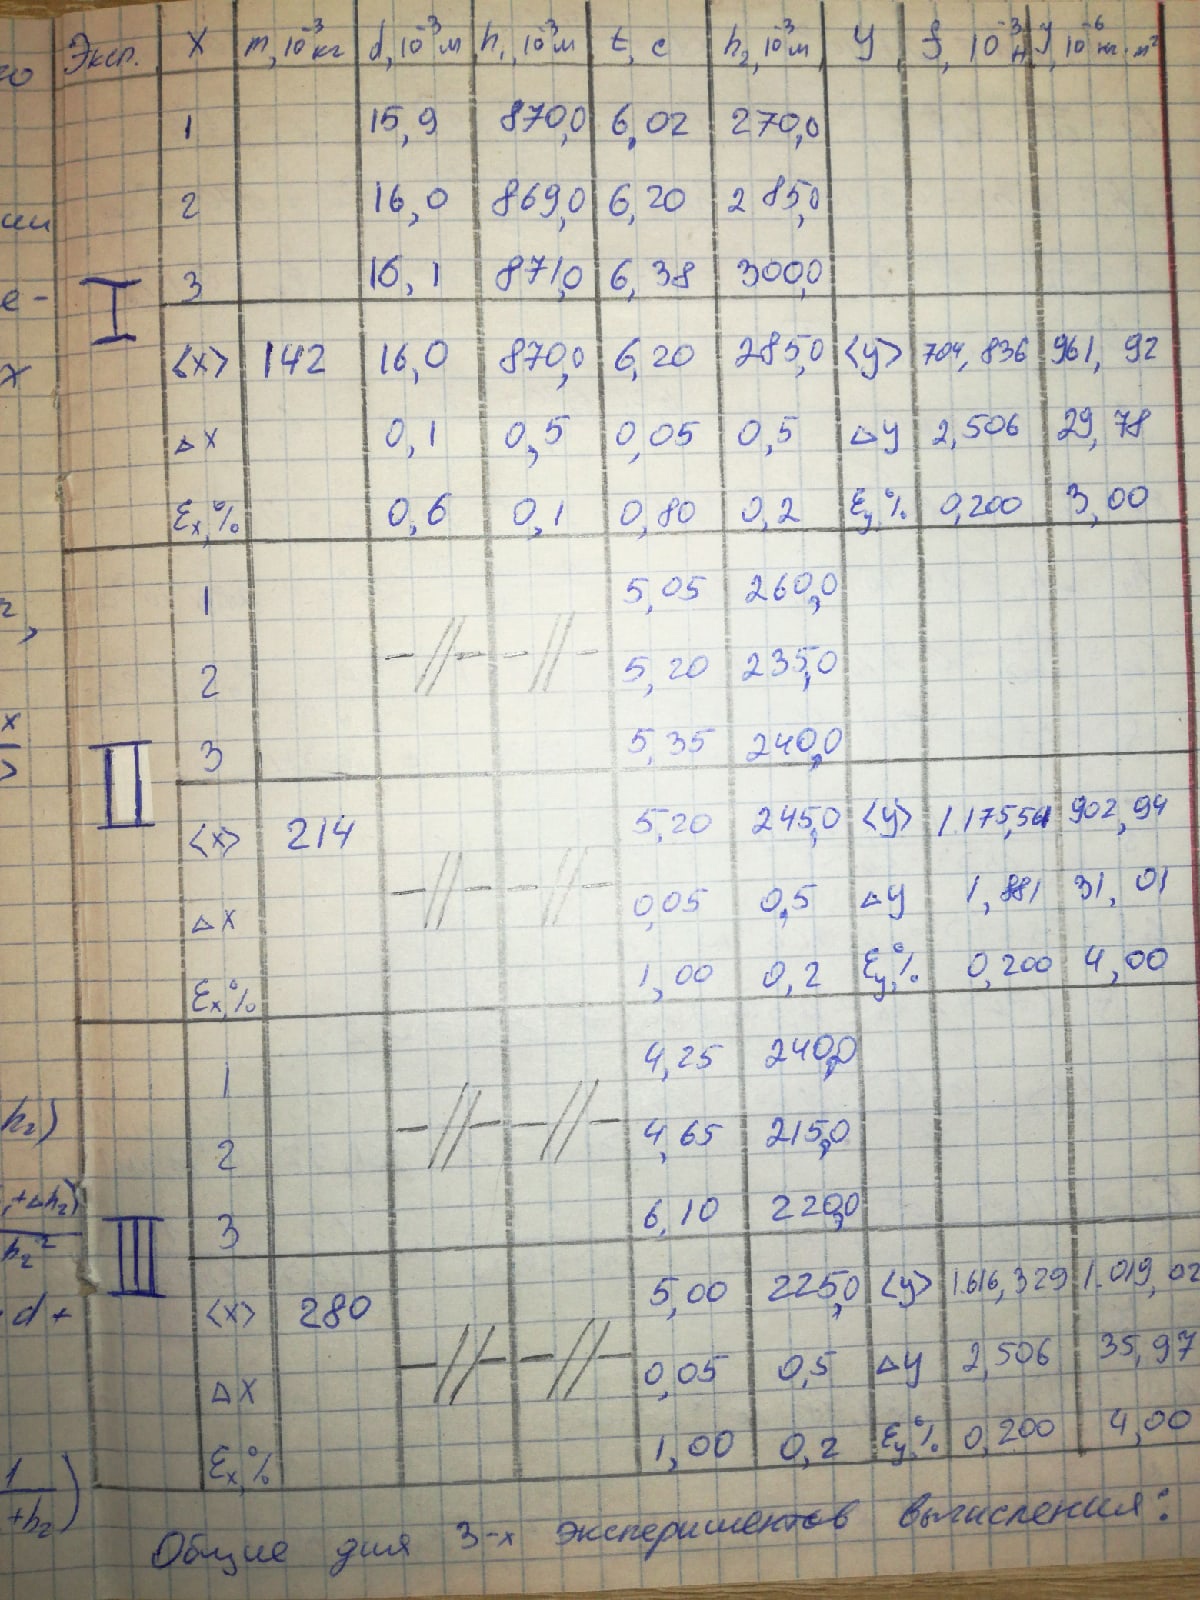 Эксп. X m, 10⁻³ кг d, 10⁻³ м h₁, 10⁻³ м t, с h₂, 10⁻³ м Y f, 10⁻³ Н J, 10⁻⁶ кг·м²
1 15,9 870,0 6,02 270,0
2 16,0 869,0 6,20 285,0
I 3 16,1 871,0 6,38 300,0
<x> 142 16,0 870,0 6,20 285,0 <y> 704,836 961,92
Δx 0,1 0,5 0,05 0,5 Δy 2,506 29,78
εₓ,% 0,6 0,1 0,80 0,2 εᵧ,% 0,200 3,00
1 5,05 260,0
2 -//- -//- 5,20 235,0
II 3 5,35 240,0
<x> 214 5,20 245,0 <y> 1175,561 902,94
Δx -//- -//- 0,05 0,5 Δy 1,881 31,01
εₓ,% 1,00 0,2 εᵧ,% 0,200 4,00
1 4,25 240,0
2 -//- -//- 4,65 215,0
III 3 6,10 220,0
<x> 280 5,00 225,0 <y> 1616,329 1.019,02
Δx -//- -//- 0,05 0,5 Δy 2,506 35,97
εₓ,% 1,00 0,2 εᵧ,% 0,200 4,00
Общие для 3-х экспериментов вычисления: